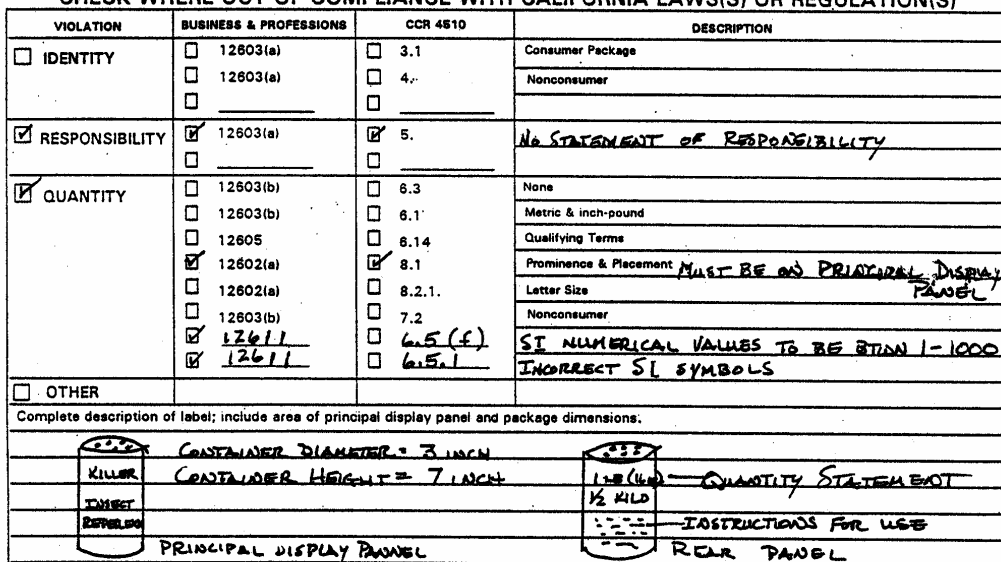 CHECK WHERE OUT OF COMPLIANCE WITH CALIFORNIA LAWS(S) OR REGULATION(S)
VIOLATION BUSINESS & PROFESSIONS CCR 4510 DESCRIPTION
☐ IDENTITY ☐ 12603(a) ☐ 3.1 Consumer Package
☐ 12603(a) ☐ 4. Nonconsumer
☐ ☐
☑ RESPONSIBILITY ☑ 12603(a) ☑ 5. No STATEMENT OF RESPONSIBILITY
☐ ☐
☑ QUANTITY ☐ 12603(b) ☐ 6.3 None
☐ 12603(b) ☐ 6.1 Metric & inch-pound
☐ 12605 ☐ 6.14 Qualifying Terms
☑ 12602(a) ☑ 8.1 Prominence & Placement MUST BE ON PRINCIPAL DISPLAY
PANEL
☐ 12602(a) ☐ 8.2.1. Letter Size
☐ 12603(b) ☐ 7.2 Nonconsumer
☑ 12611 ☐ 6.5 (f) SI NUMERICAL VALUES TO BE BTWN 1-1000
☑ 12611 ☐ 6.5.1 INCORRECT SI SYMBOLS
☐ OTHER
Complete description of label; include area of principal display panel and package dimensions.
CONTAINER DIAMETER = 3 INCH
KILLER CONTAINER HEIGHT = 7 INCH
INSECT
PRINCIPAL DISPLAY PANNEL
QUANTITY STATEMENT
1/2 KILO
INSTRUCTIONS FOR USE
REAR PANEL